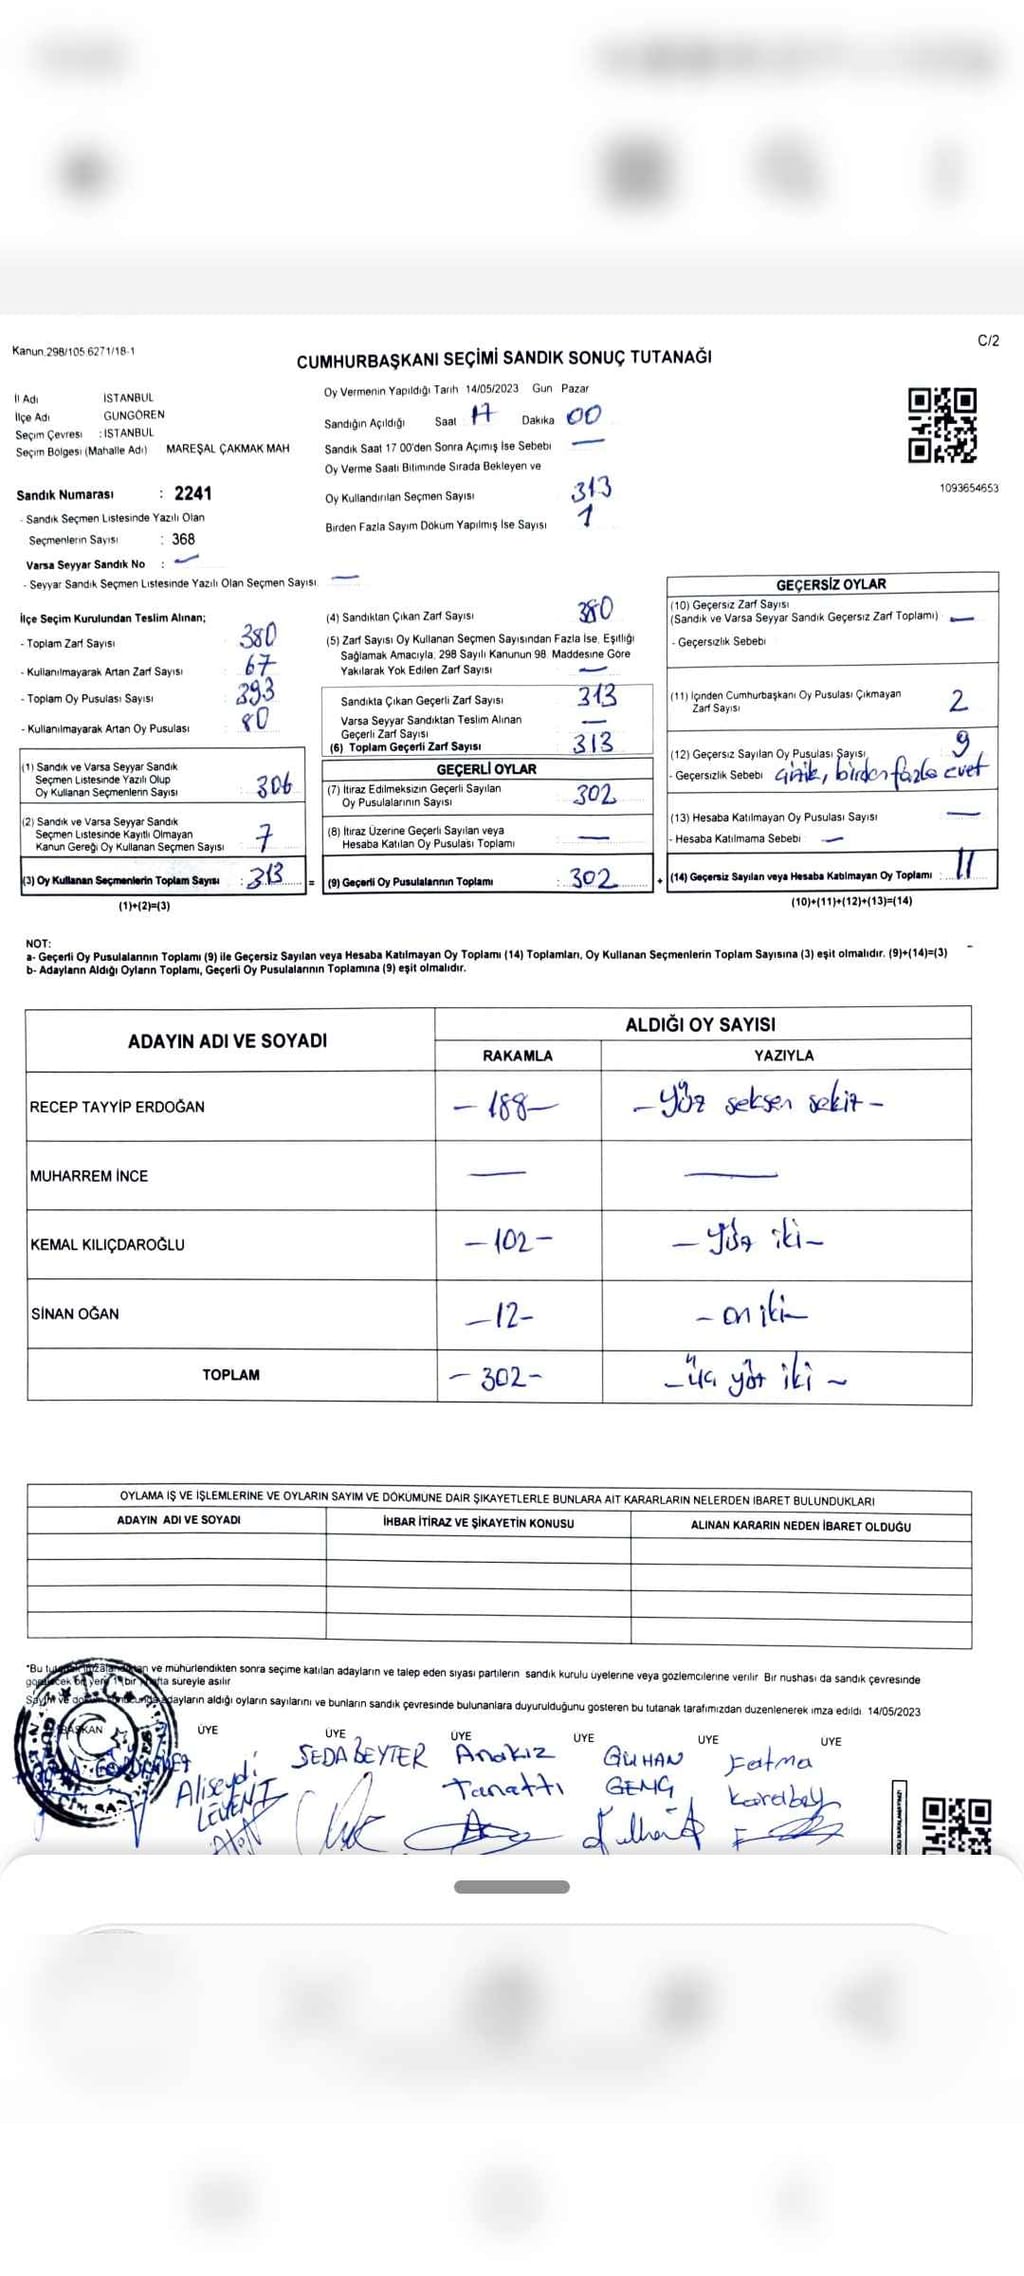 Kanun.298/105.6271/18-1
C/2
CUMHURBAŞKANI SEÇİMİ SANDIK SONUÇ TUTANAĞI
İl Adı İSTANBUL
İlçe Adı GÜNGÖREN
Seçim Çevresi : İSTANBUL
Seçim Bölgesi (Mahalle Adı) MAREŞAL ÇAKMAK MAH
Sandık Numarası : 2241
- Sandık Seçmen Listesinde Yazılı Olan
Seçmenlerin Sayısı : 368
Varsa Seyyar Sandık No : —
- Seyyar Sandık Seçmen Listesinde Yazılı Olan Seçmen Sayısı —
Oy Vermenin Yapıldığı Tarih 14/05/2023 Gün Pazar
Sandığın Açıldığı Saat 17 Dakika 00
Sandık Saat 17 00'den Sonra Açımış İse Sebebi —
Oy Verme Saati Bitiminde Sırada Bekleyen ve
Oy Kullandırılan Seçmen Sayısı 313
Birden Fazla Sayım Döküm Yapılmış İse Sayısı 1
1093654653
İlçe Seçim Kurulundan Teslim Alınan;
- Toplam Zarf Sayısı 380
- Kullanılmayarak Artan Zarf Sayısı 67
- Toplam Oy Pusulası Sayısı 393
- Kullanılmayarak Artan Oy Pusulası 80
(1) Sandık ve Varsa Seyyar Sandık
Seçmen Listesinde Yazılı Olup
Oy Kullanan Seçmenlerin Sayısı : 306
(2) Sandık ve Varsa Seyyar Sandık
Seçmen Listesinde Kayıtlı Olmayan
Kanun Gereği Oy Kullanan Seçmen Sayısı : 7
(3) Oy Kullanan Seçmenlerin Toplam Sayısı : 313
(1)+(2)=(3)
(4) Sandıktan Çıkan Zarf Sayısı 380
(5) Zarf Sayısı Oy Kullanan Seçmen Sayısından Fazla İse, Eşitliği
Sağlamak Amacıyla, 298 Sayılı Kanunun 98 Maddesine Göre
Yakılarak Yok Edilen Zarf Sayısı —
Sandıkta Çıkan Geçerli Zarf Sayısı 313
Varsa Seyyar Sandıktan Teslim Alınan
Geçerli Zarf Sayısı —
(6) Toplam Geçerli Zarf Sayısı 313
GEÇERLİ OYLAR
(7) İtiraz Edilmeksizin Geçerli Sayılan
Oy Pusulalarının Sayısı 302
(8) İtiraz Üzerine Geçerli Sayılan veya
Hesaba Katılan Oy Pusulası Toplamı —
= (9) Geçerli Oy Pusulalarının Toplamı : 302
GEÇERSİZ OYLAR
(10) Geçersiz Zarf Sayısı
(Sandık ve Varsa Seyyar Sandık Geçersiz Zarf Toplamı) —
- Geçersizlik Sebebi
(11) İçinden Cumhurbaşkanı Oy Pusulası Çıkmayan
Zarf Sayısı 2
(12) Geçersiz Sayılan Oy Pusulası Sayısı 9
- Geçersizlik Sebebi Çizik, birden fazla evet
(13) Hesaba Katılmayan Oy Pusulası Sayısı —
- Hesaba Katılmama Sebebi —
+ (14) Geçersiz Sayılan veya Hesaba Katılmayan Oy Toplamı : 11
(10)+(11)+(12)+(13)=(14)
NOT:
a- Geçerli Oy Pusulalarının Toplamı (9) ile Geçersiz Sayılan veya Hesaba Katılmayan Oy Toplamı (14) Toplamları, Oy Kullanan Seçmenlerin Toplam Sayısına (3) eşit olmalıdır. (9)+(14)=(3)
b- Adayların Aldığı Oyların Toplamı, Geçerli Oy Pusulalarının Toplamına (9) eşit olmalıdır.
ADAYIN ADI VE SOYADI
ALDIĞI OY SAYISI
RAKAMLA YAZIYLA
RECEP TAYYİP ERDOĞAN – 188 – – Yüz seksen sekiz –
MUHARREM İNCE — —
KEMAL KILIÇDAROĞLU – 102 – – Yüz iki –
SİNAN OĞAN – 12 – – on iki –
TOPLAM – 302 – – üç yüz iki –
OYLAMA İŞ VE İŞLEMLERİNE VE OYLARIN SAYIM VE DÖKÜMÜNE DAİR ŞİKAYETLERLE BUNLARA AİT KARARLARIN NELERDEN İBARET BULUNDUKLARI
ADAYIN ADI VE SOYADI İHBAR İTİRAZ VE ŞİKAYETİN KONUSU ALINAN KARARIN NEDEN İBARET OLDUĞU
*Bu ve mühürlendikten sonra seçime katılan adayların ve talep eden siyasi partilerin sandık kurulu üyelerine veya gözlemcilerine verilir Bir nüshası da sandık çevresinde
süreyle asılır
adayların aldığı oyların sayılarını ve bunların sandık çevresinde bulunanlara duyurulduğunu gösteren bu tutanak tarafımızdan düzenlenerek imza edildi. 14/05/2023
BAŞKAN ÜYE ÜYE ÜYE ÜYE ÜYE ÜYE
Aliseydi LEVENT
SEDA BEYTER
Anakız Tanattı
GÜLHAN GENÇ
Fatma Karabay